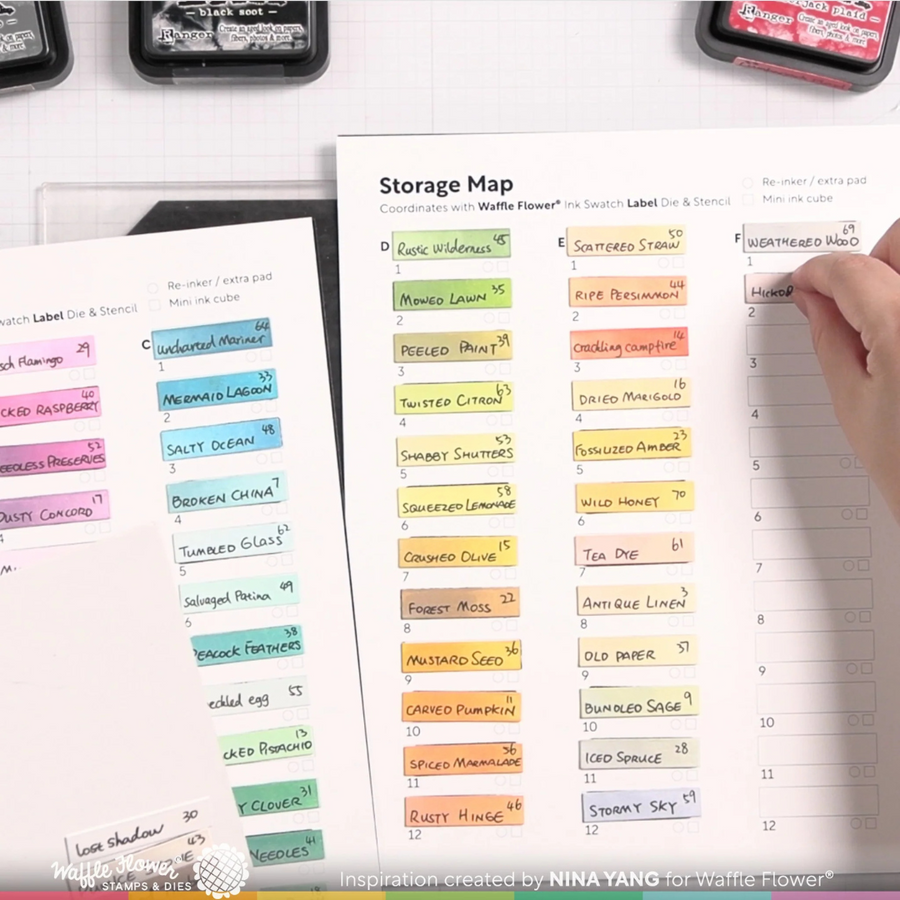 black soot
Ranger
Create an aged look on papers,
fibers, photos & more!
jack plaid
Ranger
Create an aged look on papers,
fibers, photos & more!
Storage Map
Coordinates with Waffle Flower® Ink Swatch Label Die & Stencil
Re-inker / extra pad
Mini ink cube
D
Rustic Wilderness 45
1
MOWED LAWN 35
2
PEELED PAINT 39
3
TWISTED CITRON 63
4
SHABBY SHUTTERS 53
5
SQUEEZED LEMONADE 58
6
CRUSHED OLIVE 15
7
FOREST MOSS 22
8
MUSTARD SEED 36
9
CARVED PUMPKIN 11
10
SPICED MARMALADE 56
11
RUSTY HINGE 46
12
E
SCATTERED STRAW 50
1
RIPE PERSIMMON 44
2
Crackling campfire 14
3
DRIED MARIGOLD 16
4
FOSSILIZED AMBER 23
5
WILD HONEY 70
6
TEA DYE 61
7
ANTIQUE LINEN 3
8
OLD PAPER 37
9
BUNDLED SAGE 9
10
ICED SPRUCE 28
11
STORMY SKY 59
12
F
WEATHERED WOOD 69
1
2
3
4
5
6
7
8
9
10
11
12
Label Die & Stencil
Re-inker / extra pad
Mini ink cube
Flamingo 29
RASPBERRY 40
PRESERVES 52
DUSTY CONCORD 17
C
uncharted Mariner 64
1
MERMAID LAGOON 33
2
SALTY OCEAN 48
3
BROKEN CHINA 7
4
TUMBLED GLASS 62
5
Salvaged Patina 49
6
PEACOCK FEATHERS 38
egg 55
PISTACHIO 13
CLOVER 31
NEEDLES 41
Lost shadow 30
43
Waffle Flower
STAMPS & DIES
Inspiration created by NINA YANG for Waffle Flower®